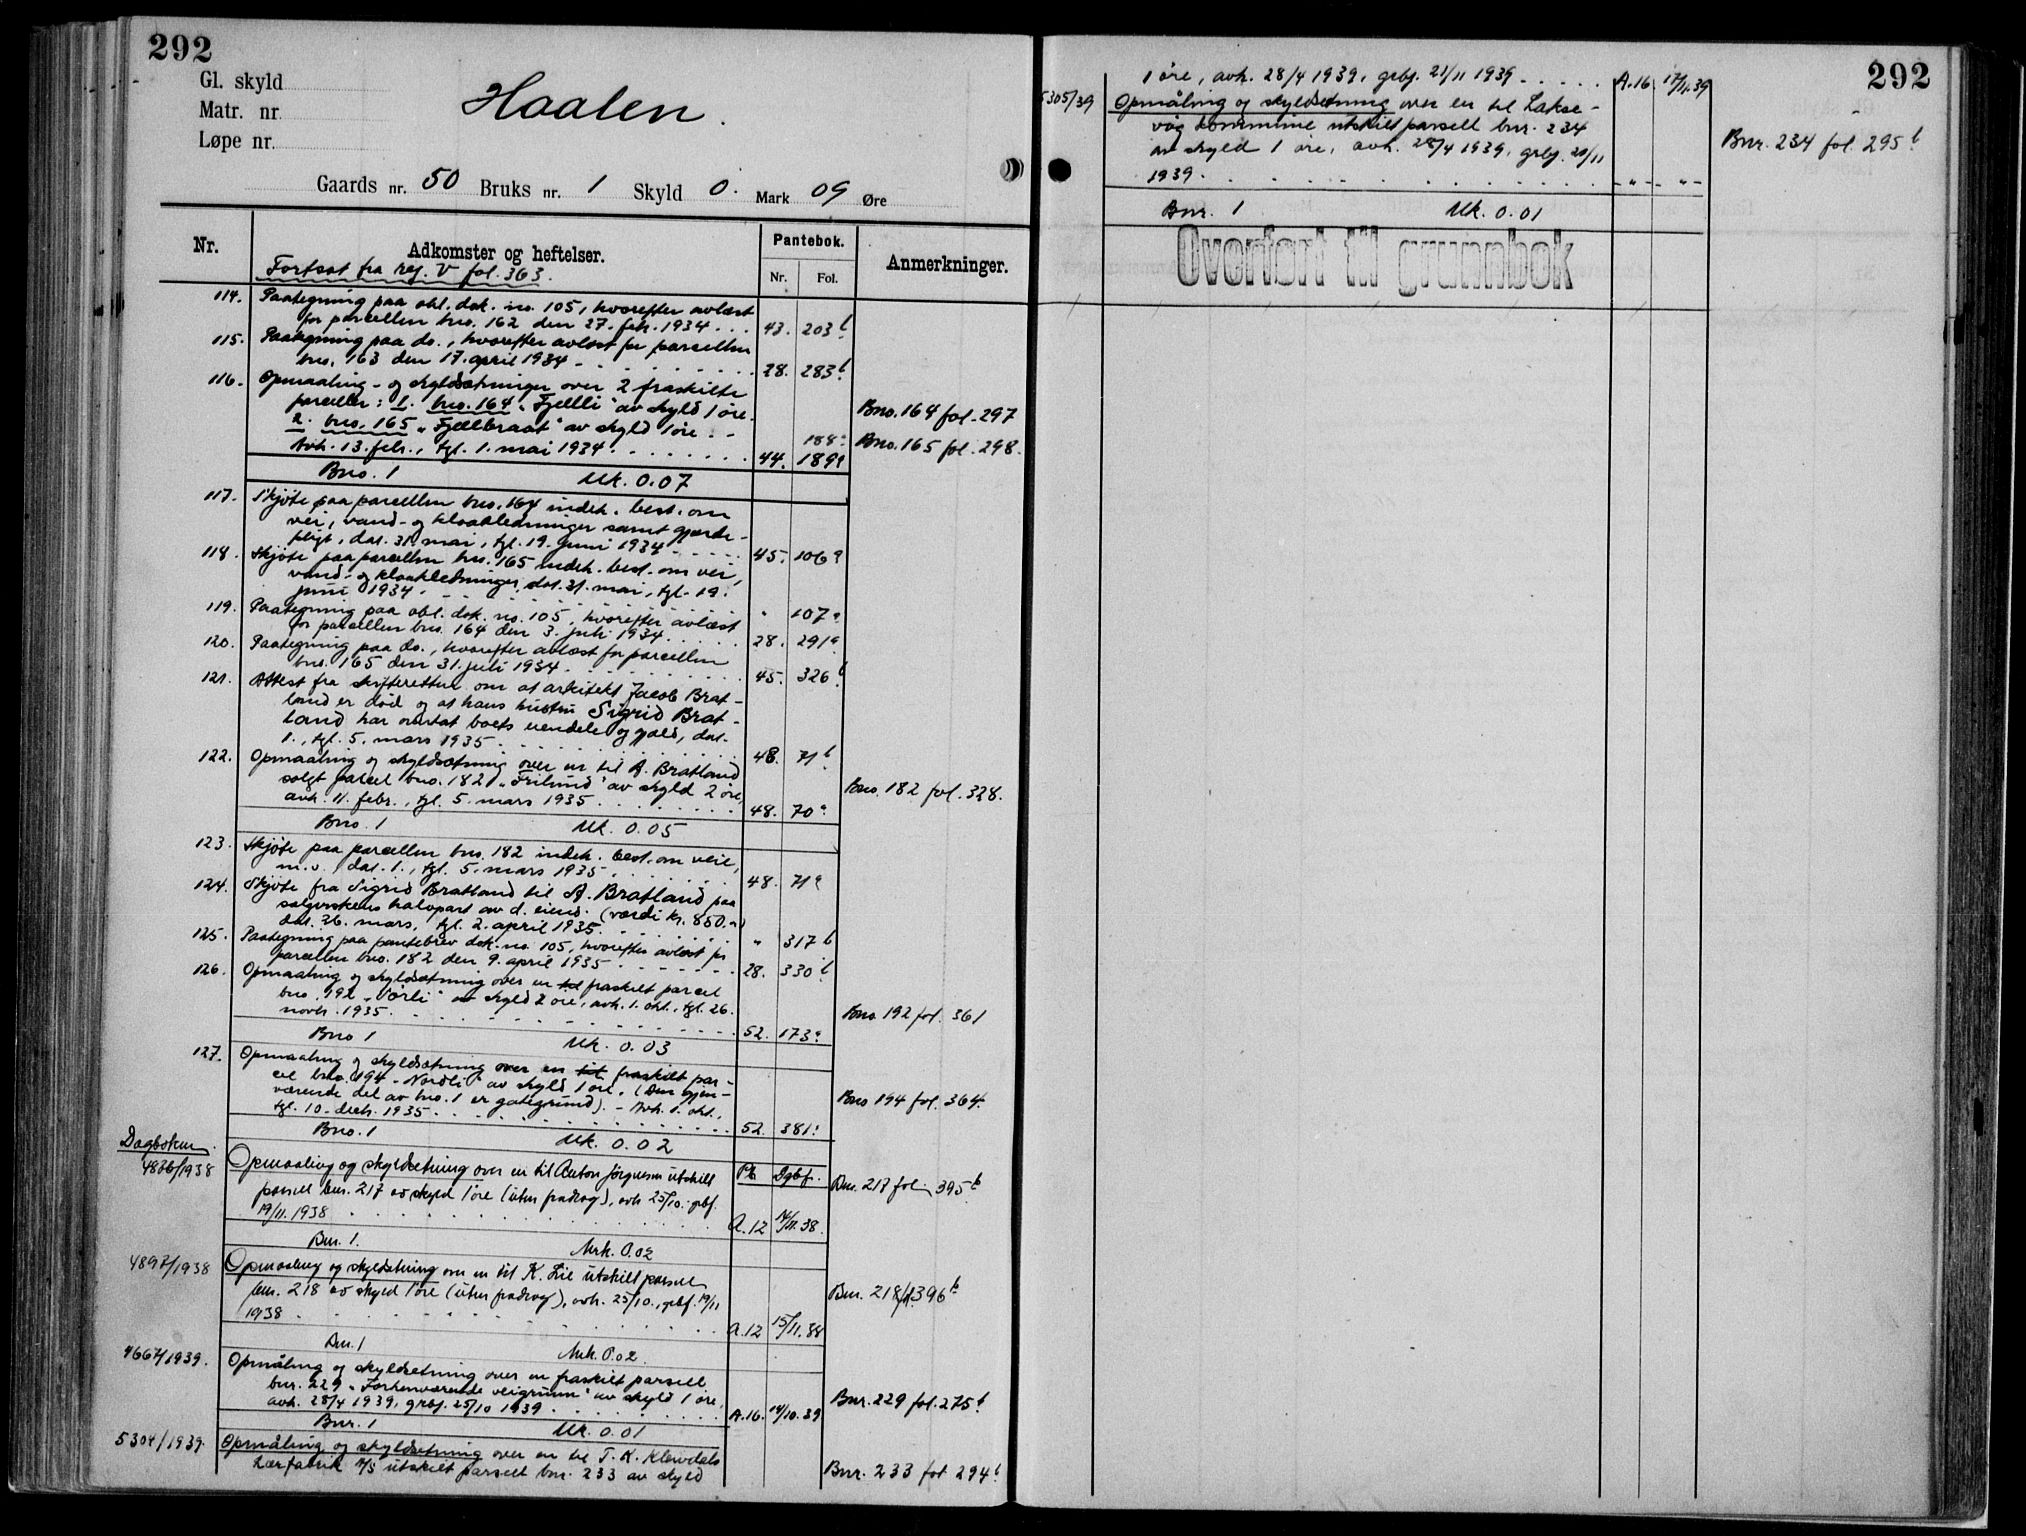 292
Gl. skyld
Matr. nr.
Løpe nr.
Haalen.
Gaards nr. 50 Bruks nr. 1 Skyld 0. Mark 09 Øre
Nr.
Adkomster og heftelser.
Pantebok.
Nr. Fol.
Anmerkninger.
Fortsat fra reg. V fol. 363.
114. Paategning paa obl. dok. no. 105, hvorefter avløst
for parcellen bno. 162 den 27. feb. 1934 . . . 43. 203 b
115. Paategning paa do., hvorefter avløst for parcellen
bno. 163 den 17. april 1934 - - - 28. 283 b
116. Opmaaling- og skyldsætninger over 2 fraskilte
parceller: 1. bno. 164 "Fjellli" av skyld 1 øre. Bno. 164 fol. 297
2. bno. 165 "Fjælbraat" av skyld 1 øre. - 188 a Bno. 165 fol. 298.
Avh. 13. febr., tgl. 1. mai 1934 . . . 44. 189 a
Bno. 1 Mk. 0.07
117. Skjøte paa parcellen bno. 164 indeh. best. om
vei, vand- og kloakledninger samt gjærde-
pligt, dat. 31. mai, tgl. 19. juni 1934 - - - 45. 106 a
118. Skjøte paa parcellen bno. 165 indeh. best. om vei,
vand- og kloakledninger, dat. 31. mai, tgl. 19.
juni 1934. " 107 a
119. Paategning paa obl. dok. no. 105, hvorefter avløst
for parcellen bno. 164 den 3. juli 1934. . . . 28. 291 a
120. Paategning paa do., hvorefter avløst for parcellen
bno. 165 den 31. juli 1934. . . . 45. 326 b
121. Attest fra skifteretten om at arkitekt Jacob Brat-
land er død og at hans hustru Sigrid Brat-
land har overtat boets eiendele og gjæld, dat.
1., tgl. 5. mars 1935 . . . 48. 71 b
122. Opmaaling og skyldsætning over en til A. Bratland
solgt parcel bno. 182 "Frilund" av skyld 2 øre, Bno. 182 fol. 328.
avh. 11. febr., tgl. 5. mars 1935 . . . 48. 70 a
Bno. 1 Mk. 0.05
123. Skjøte paa parcellen bno. 182 indeh. best. om veie,
m.v., dat. 1., tgl. 5. mars 1935. . . . 48. 71 a
124. Skjøte fra Sigrid Bratland til A. Bratland paa
sælgerskens halvpart av d. eiend. (værdi kr. 850.-)
dat. 26. mars, tgl. 2. april 1935. . . . " 317 b
125. Paategning paa pantebrev dok. no. 105, hvorefter avløst for
parcellen bno. 182 den 9. april 1935 . . . 28. 330 b
126. Opmaaling og skyldsætning over en til fraskilt parcel
bno. 192 "Sørli" av skyld 2 øre, avh. 1. okt., tgl. 26.
novbr. 1935. . . . 52. 173 a Bno. 192 fol. 361
Bno 1 Mk. 0.03
127. Opmaaling og skyldsætning over en til fraskilt par-
cel bno. 194 "Nordli" av skyld 1 øre. (Den gjen-
værende del av bno. 1 er gategrund). - Avh. 1. okt., Bno 194 fol. 364.
tgl. 10. decb. 1935 . . . 52. 381
Bno. 1 Mk. 0.02
Dagboknr.
4826/1938 Opmaaling og skyldsetning over en til Anton Jørgensen utskilt Pb Dgbf.
parsell bnr. 217 av skyld 1 øre (uten fradrag), avh 25/10. gbf. Bnr. 217 fol. 395 b
19/11. 1938 . . . A. 12 14/11. 38.
Bnr. 1. Mrk. 0.02
4897/1938 Opmaaling og skyldsetning over en til K. Lie utskilt parsell
bnr. 218 av skyld 1 øre (uten fradrag), avh. 25/10., gbf. 19/11 Bnr. 218 fol. 396 b
1938 . . . A. 12 15/11. 38
Bnr. 1 Mrk. 0.02
4667/1939. Opmåling og skyldsetning over en fraskilt parsell
bnr. 229 "Forhenværende veigrunn" av skyld 1 øre, Bnr. 229 fol. 275 b
avh. 28/4 1939, grbf. 25/10 1939 . . . A. 16. 14/10. 39
Bnr. 1 Mk. 0.01
5304/1939. Opmåling og skyldsetning over en til T. K. Klevdals
Lærfabrik A/S utskilt parsell bnr. 233 av skyld Bnr. 233 fol 294 b
292
1 øre, avh. 28/4 1939, grbf. 21/11 1939 . . . A. 16 17/11. 39
5305/39 Opmåling og skyldsetning over en til Lakse-
våg kommune utskilt parsell bnr. 234
av skyld 1 øre, avh. 28/4 1939, grbf. 21/11 Bnr. 234 fol. 295 b
1939 . . . - " - - " -
Bnr. 1 Mk. 0.01
Overført til grunnbok